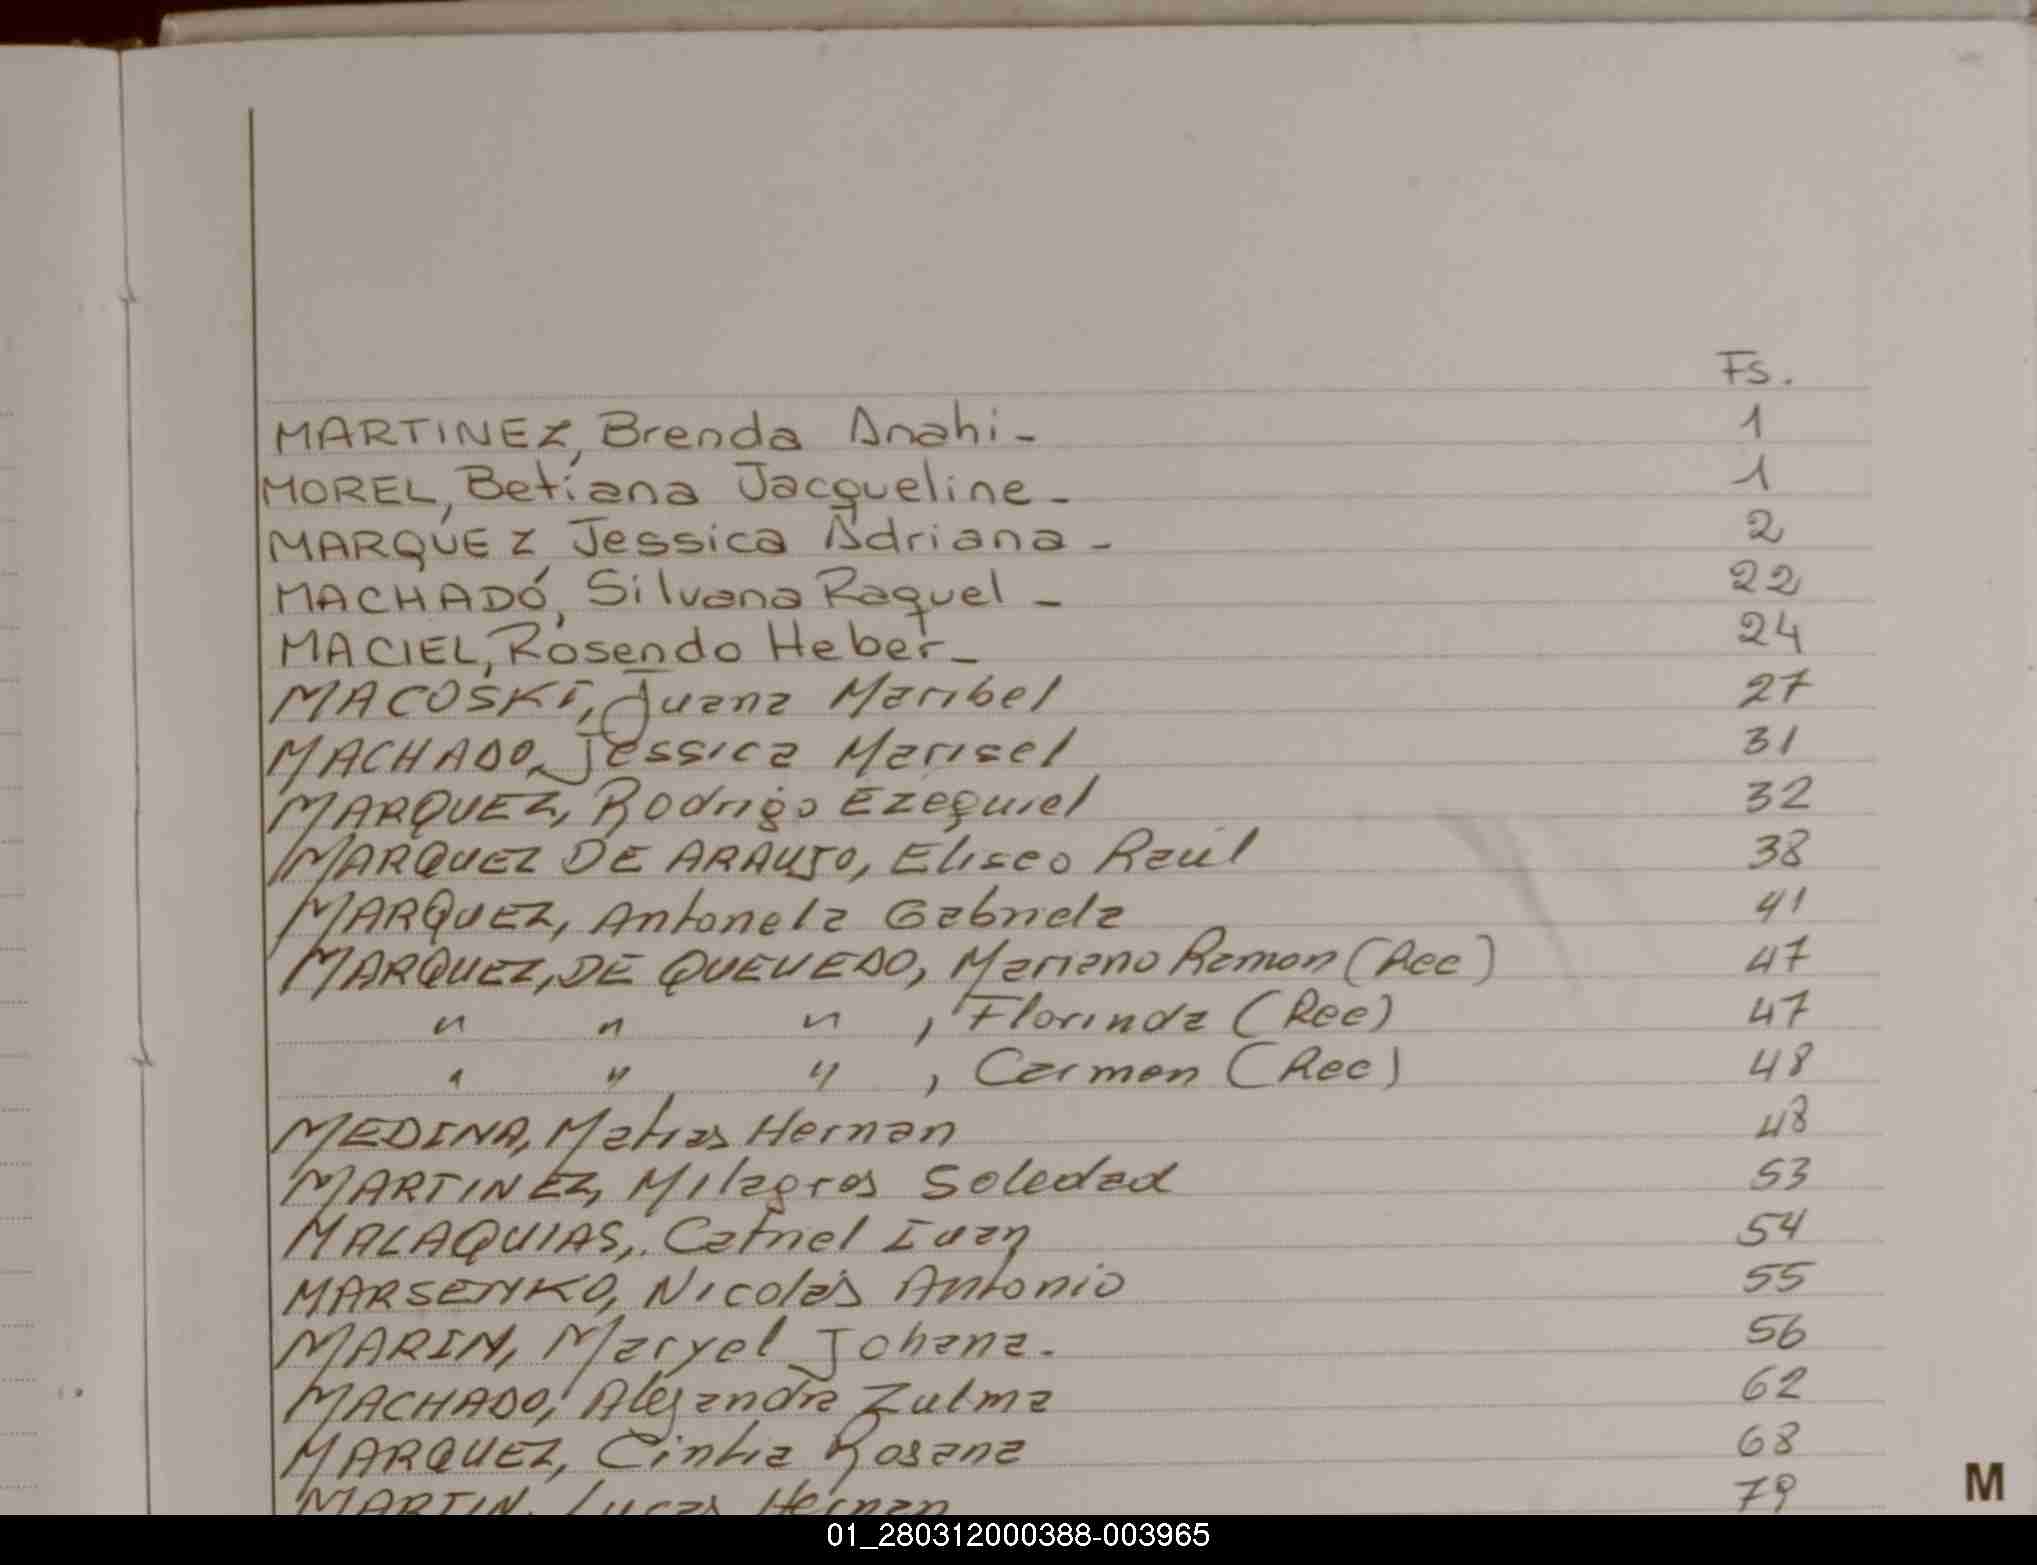 Fs.
MARTINEZ, Brenda Anahi - 1
MOREL, Betiana Jacqueline - 1
MARQUEZ, Jessica Adriana - 2
MACHADO, Silvana Raquel - 22
MACIEL, Rosendo Heber - 24
MACOSKI, Juana Maribel 27
MACHADO, Jessica Marisel 31
MARQUEZ, Rodrigo Ezequiel 32
MARQUEZ DE ARAUJO, Eliseo Raúl 38
MARQUEZ, Antonela Gabriela 41
MARQUEZ, DE QUEVEDO, Mariano Ramon (Rec) 47
" " " , Florinda (Rec) 47
" " " , Carmen (Rec) 48
MEDINA, Matias Hernan 48
MARTINEZ, Milagros Soledad 53
MALAQUIAS, Catriel Ivan 54
MARSENKO, Nicolás Antonio 55
MARIN, Maryel Johana. 56
MACHADO, Alejandra Zulma 62
MARQUEZ, Cintia Rosana 68
MARTIN, Lucas Hernan 79
M
01_280312000388-003965